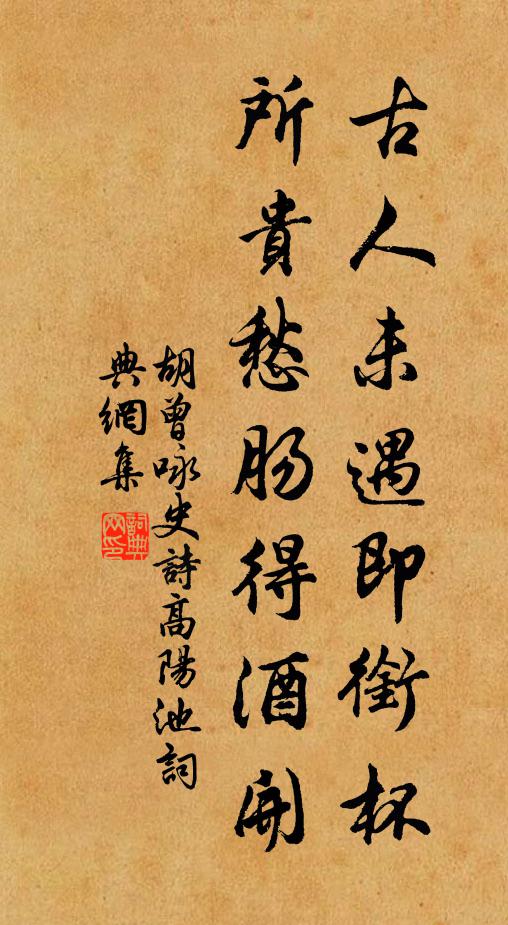 古人未遇即銜杯
所貴愁腸得酒開
胡曾咏史詩高陽池詞
典網集
詞典网印